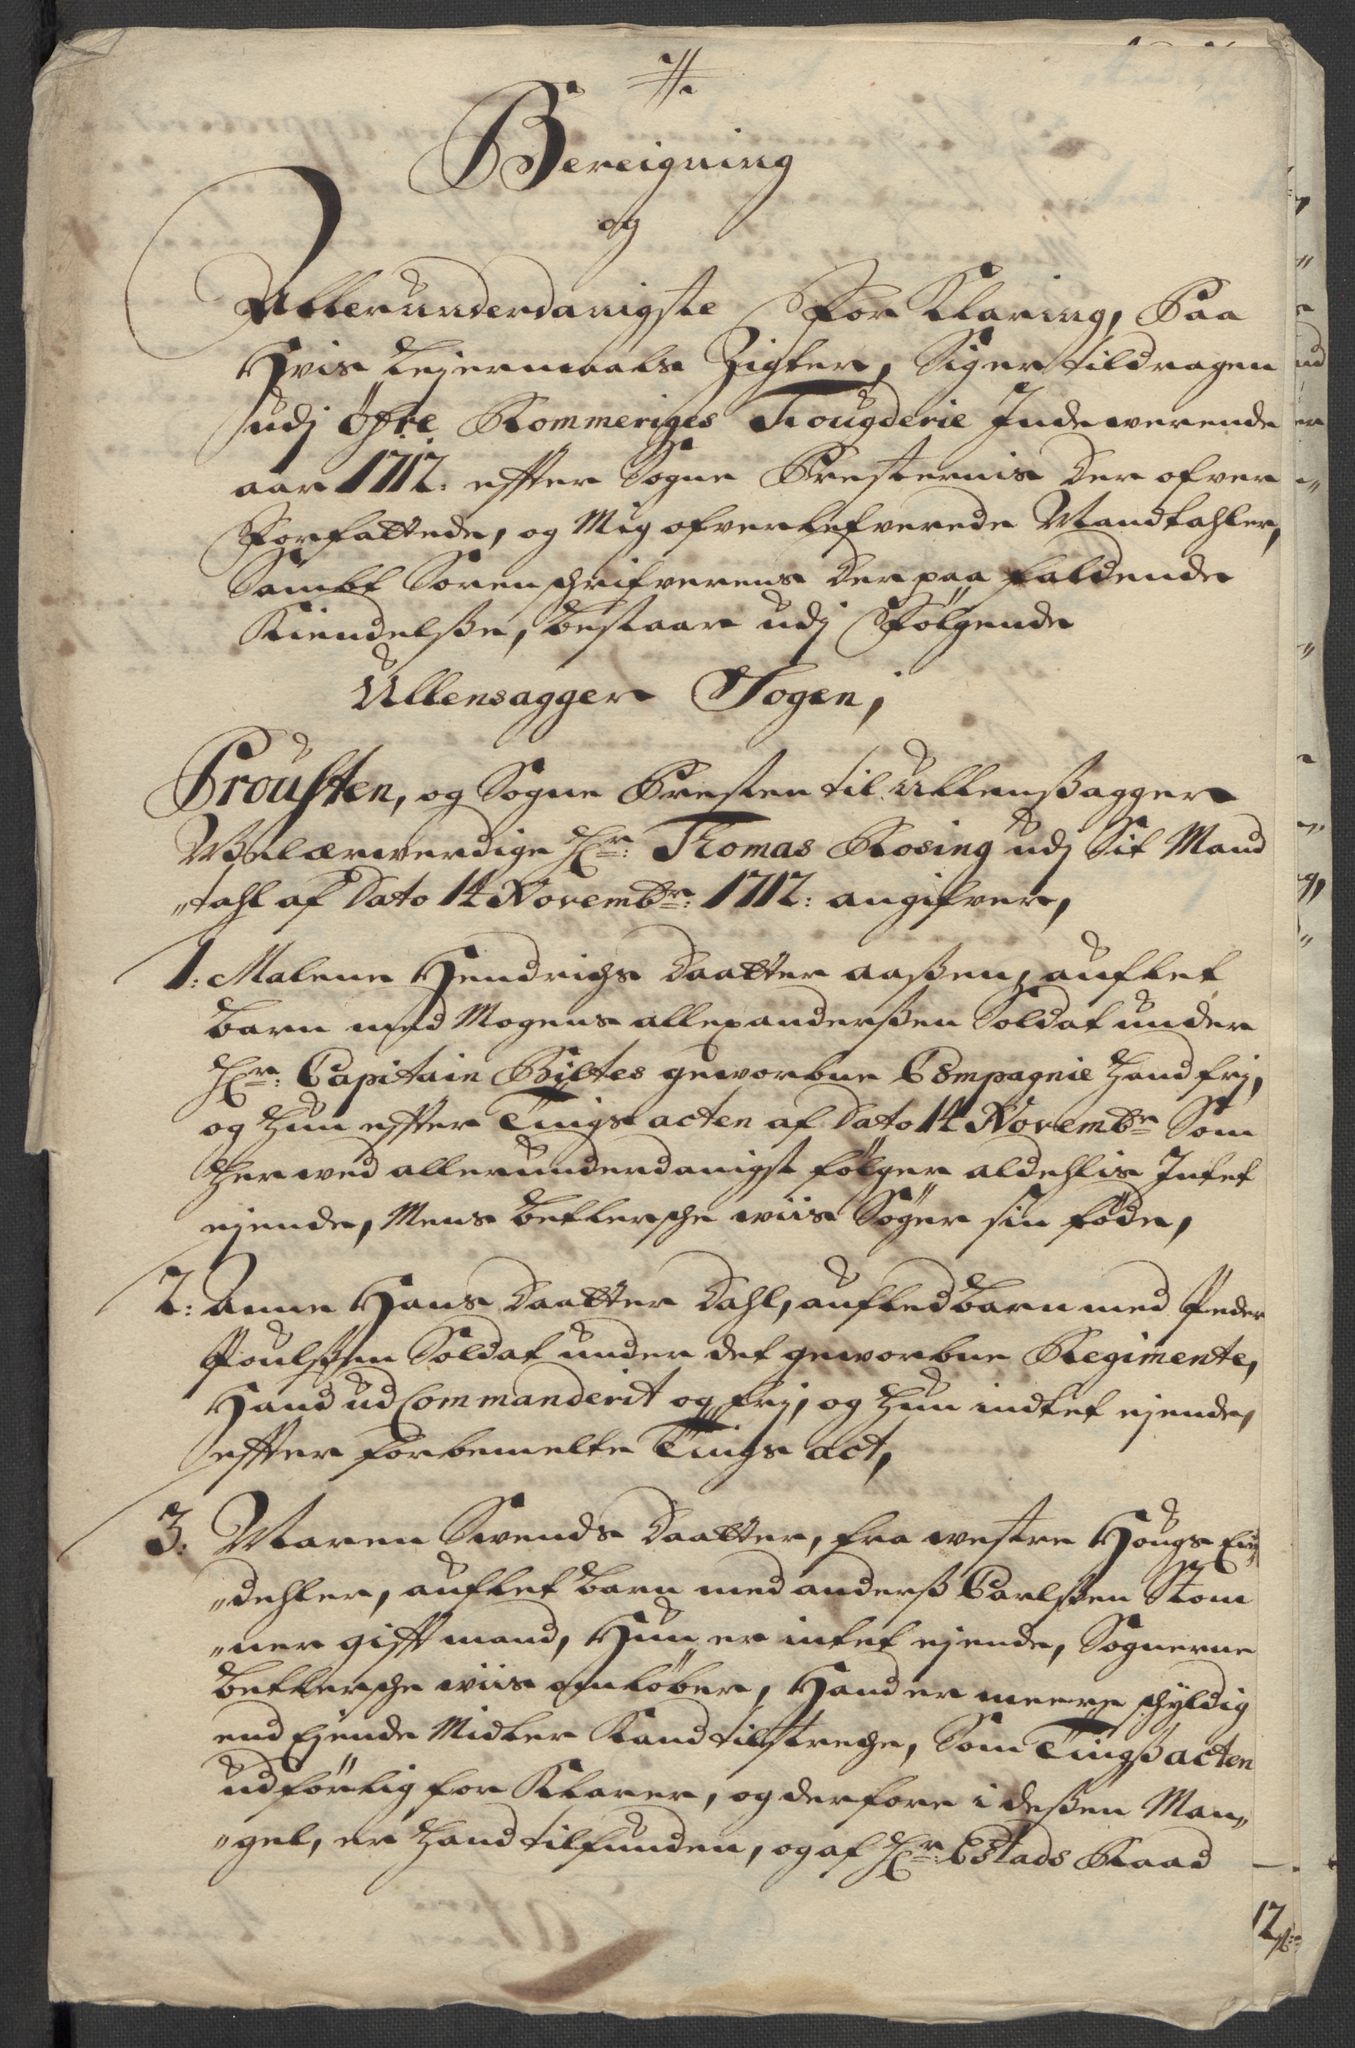 Bereigning
og
Allerunderdanigste For Klaring, Paa
Hvis Lejermaals Zigter, Siger tildragen
udj Öfre Rommeriges Fougderie Indewerende
aar 1712: effter Sogne Presternis der ofver
Forfattede, og Mig ofverlefverede Mandtahler,
Sambt Sorenschrifverens derpaa faldende
Kiendelsße, bestaar udj Følgende
Ullensagger Sogen;
Prousten, og Sogne Presten til Ullensßagger
Welærwerdige Hr: Thomas Rosing udj Sit Mand
"tahl af Dato 14 Novembr: 1712: angifver,
1: Malene Hendrichs Daatter aaßen, auflet
barn med Mogens allexanderßen Soldat under
Hr: Capitain Biltes geworbne Compagnie hand frj,
og hun effter Tings acten af Dato 14 Novembr Som
herwed allerunderdanigst følger aldehlis Intet
ejende, Mens betlersche wiis Søger sin føde,
2: Anne Hans Daatter Dahl, aufled barn med Peder
Poulsßen Soldat under det geworbne Regimente,
Hand ud Commanderit og frj, og hun indtet ejende,
effter forbemelte Tings act,
3: Maren Swends Daatter, fra westre Hougs Eij
"dehler, auflet barn med anderß Carlsßen Stom
"ner gifft mand, Hun er intet ejende, Sognerne
betlersche wiis omløber, Hand er meere schyldig
end Ejende Midler Kand tilstreche, Som Tingsß acten
udførlig for Klarer, og derfore i deßen Man"
"gel, er hand tilfunden, og af Hr: Etads Raad
12